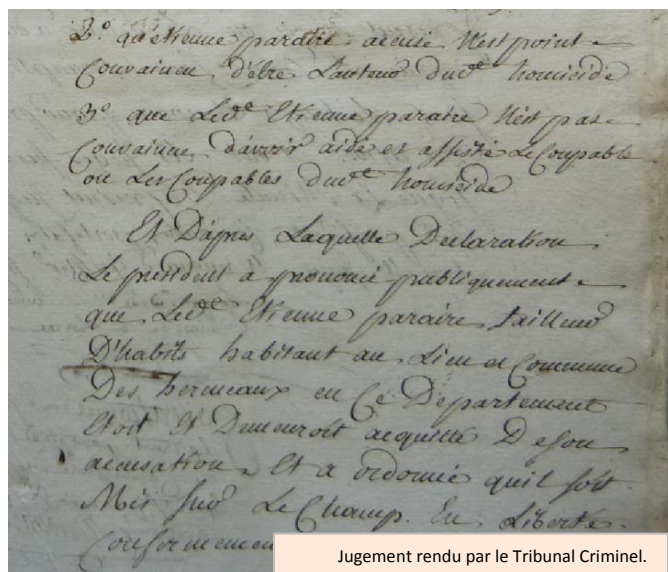 2.º qu'etienne paraire accusé N'est point
Convaincu d'être L'auteur dud.t homicide
3º que Led.t Etienne paraire N'est pas
Convaincu d'avoir aidé et assisté Le Coupable
ou Les Coupables dud.t homicide
Et D'après Laquelle Declaration
Le président a prononcé publiquement
que Led.t Etienne paraire tailleur
D'habits habitant au Lieu et Commune
Des hermeaux en Ce Departement
Etoit Et Demeuroit acquitté De son
accusation Et a ordonné quil soit
Mis Sur Le Champ En Liberté
Conformemen
Jugement rendu par le Tribunal Criminel.